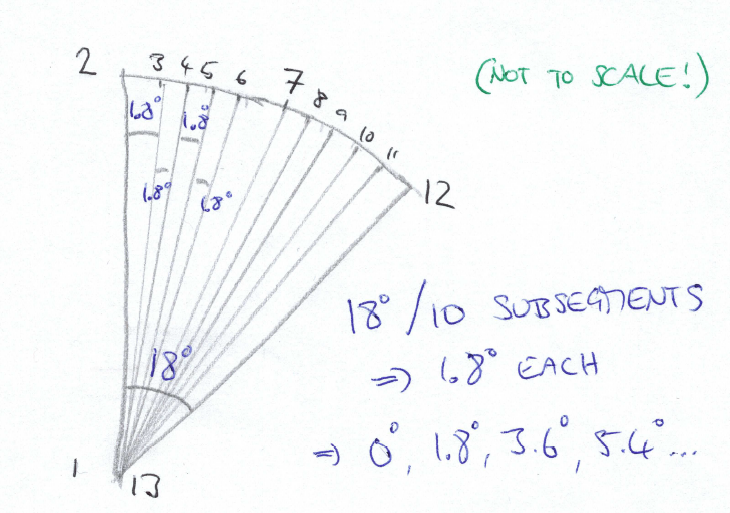 (NOT TO SCALE!)
2 3 4 5 6 7 8 9 10 11 12
1.8° 1.8°
1.8° 1.8°
18°
1 13
18°/10 SUBSEGMENTS
=> 1.8° EACH
=> 0°, 1.8°, 3.6°, 5.4°...